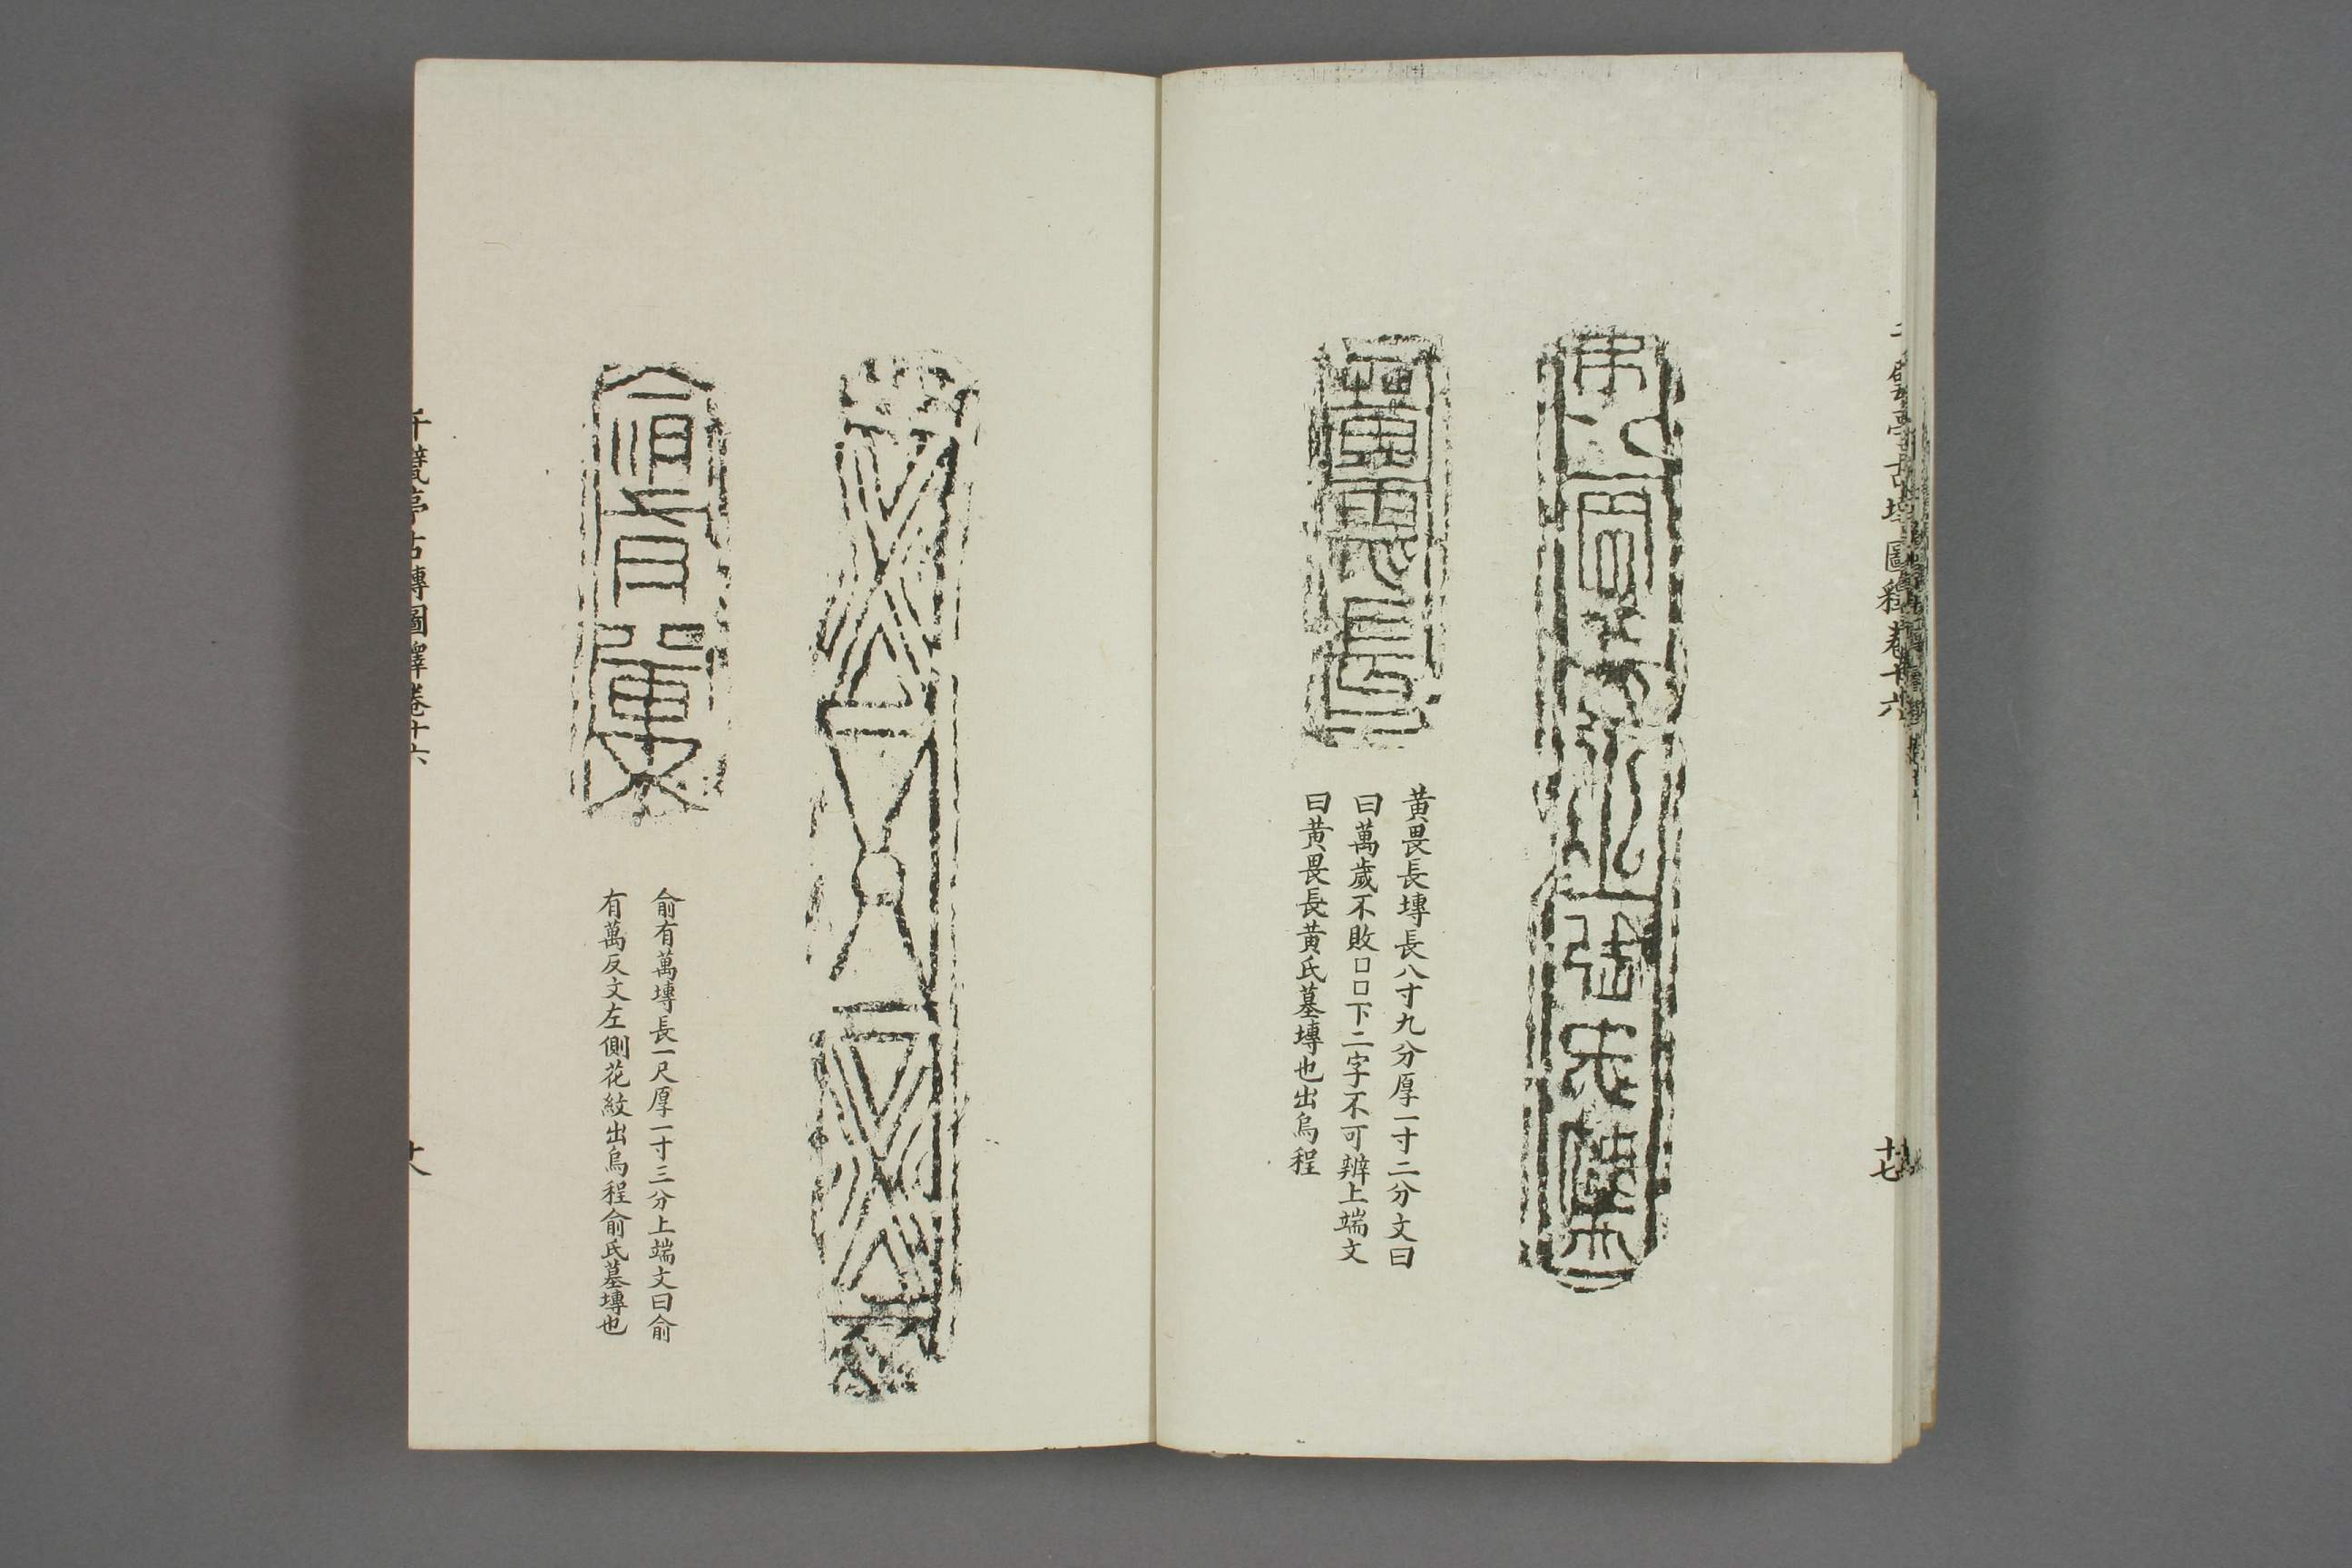 千甓亭古塼圖釋卷十六
十七
黃畏長塼長八寸九分厚一寸二分文曰
曰萬歲不敗口口下二字不可辨上端文
曰黃畏長黃氏墓塼也出烏程
黃畏長
俞有萬塼長一尺厚一寸三分上端文曰俞
有萬反文左側花紋出烏程俞氏墓塼也
俞有萬
千甓亭古塼圖釋卷十六
十八